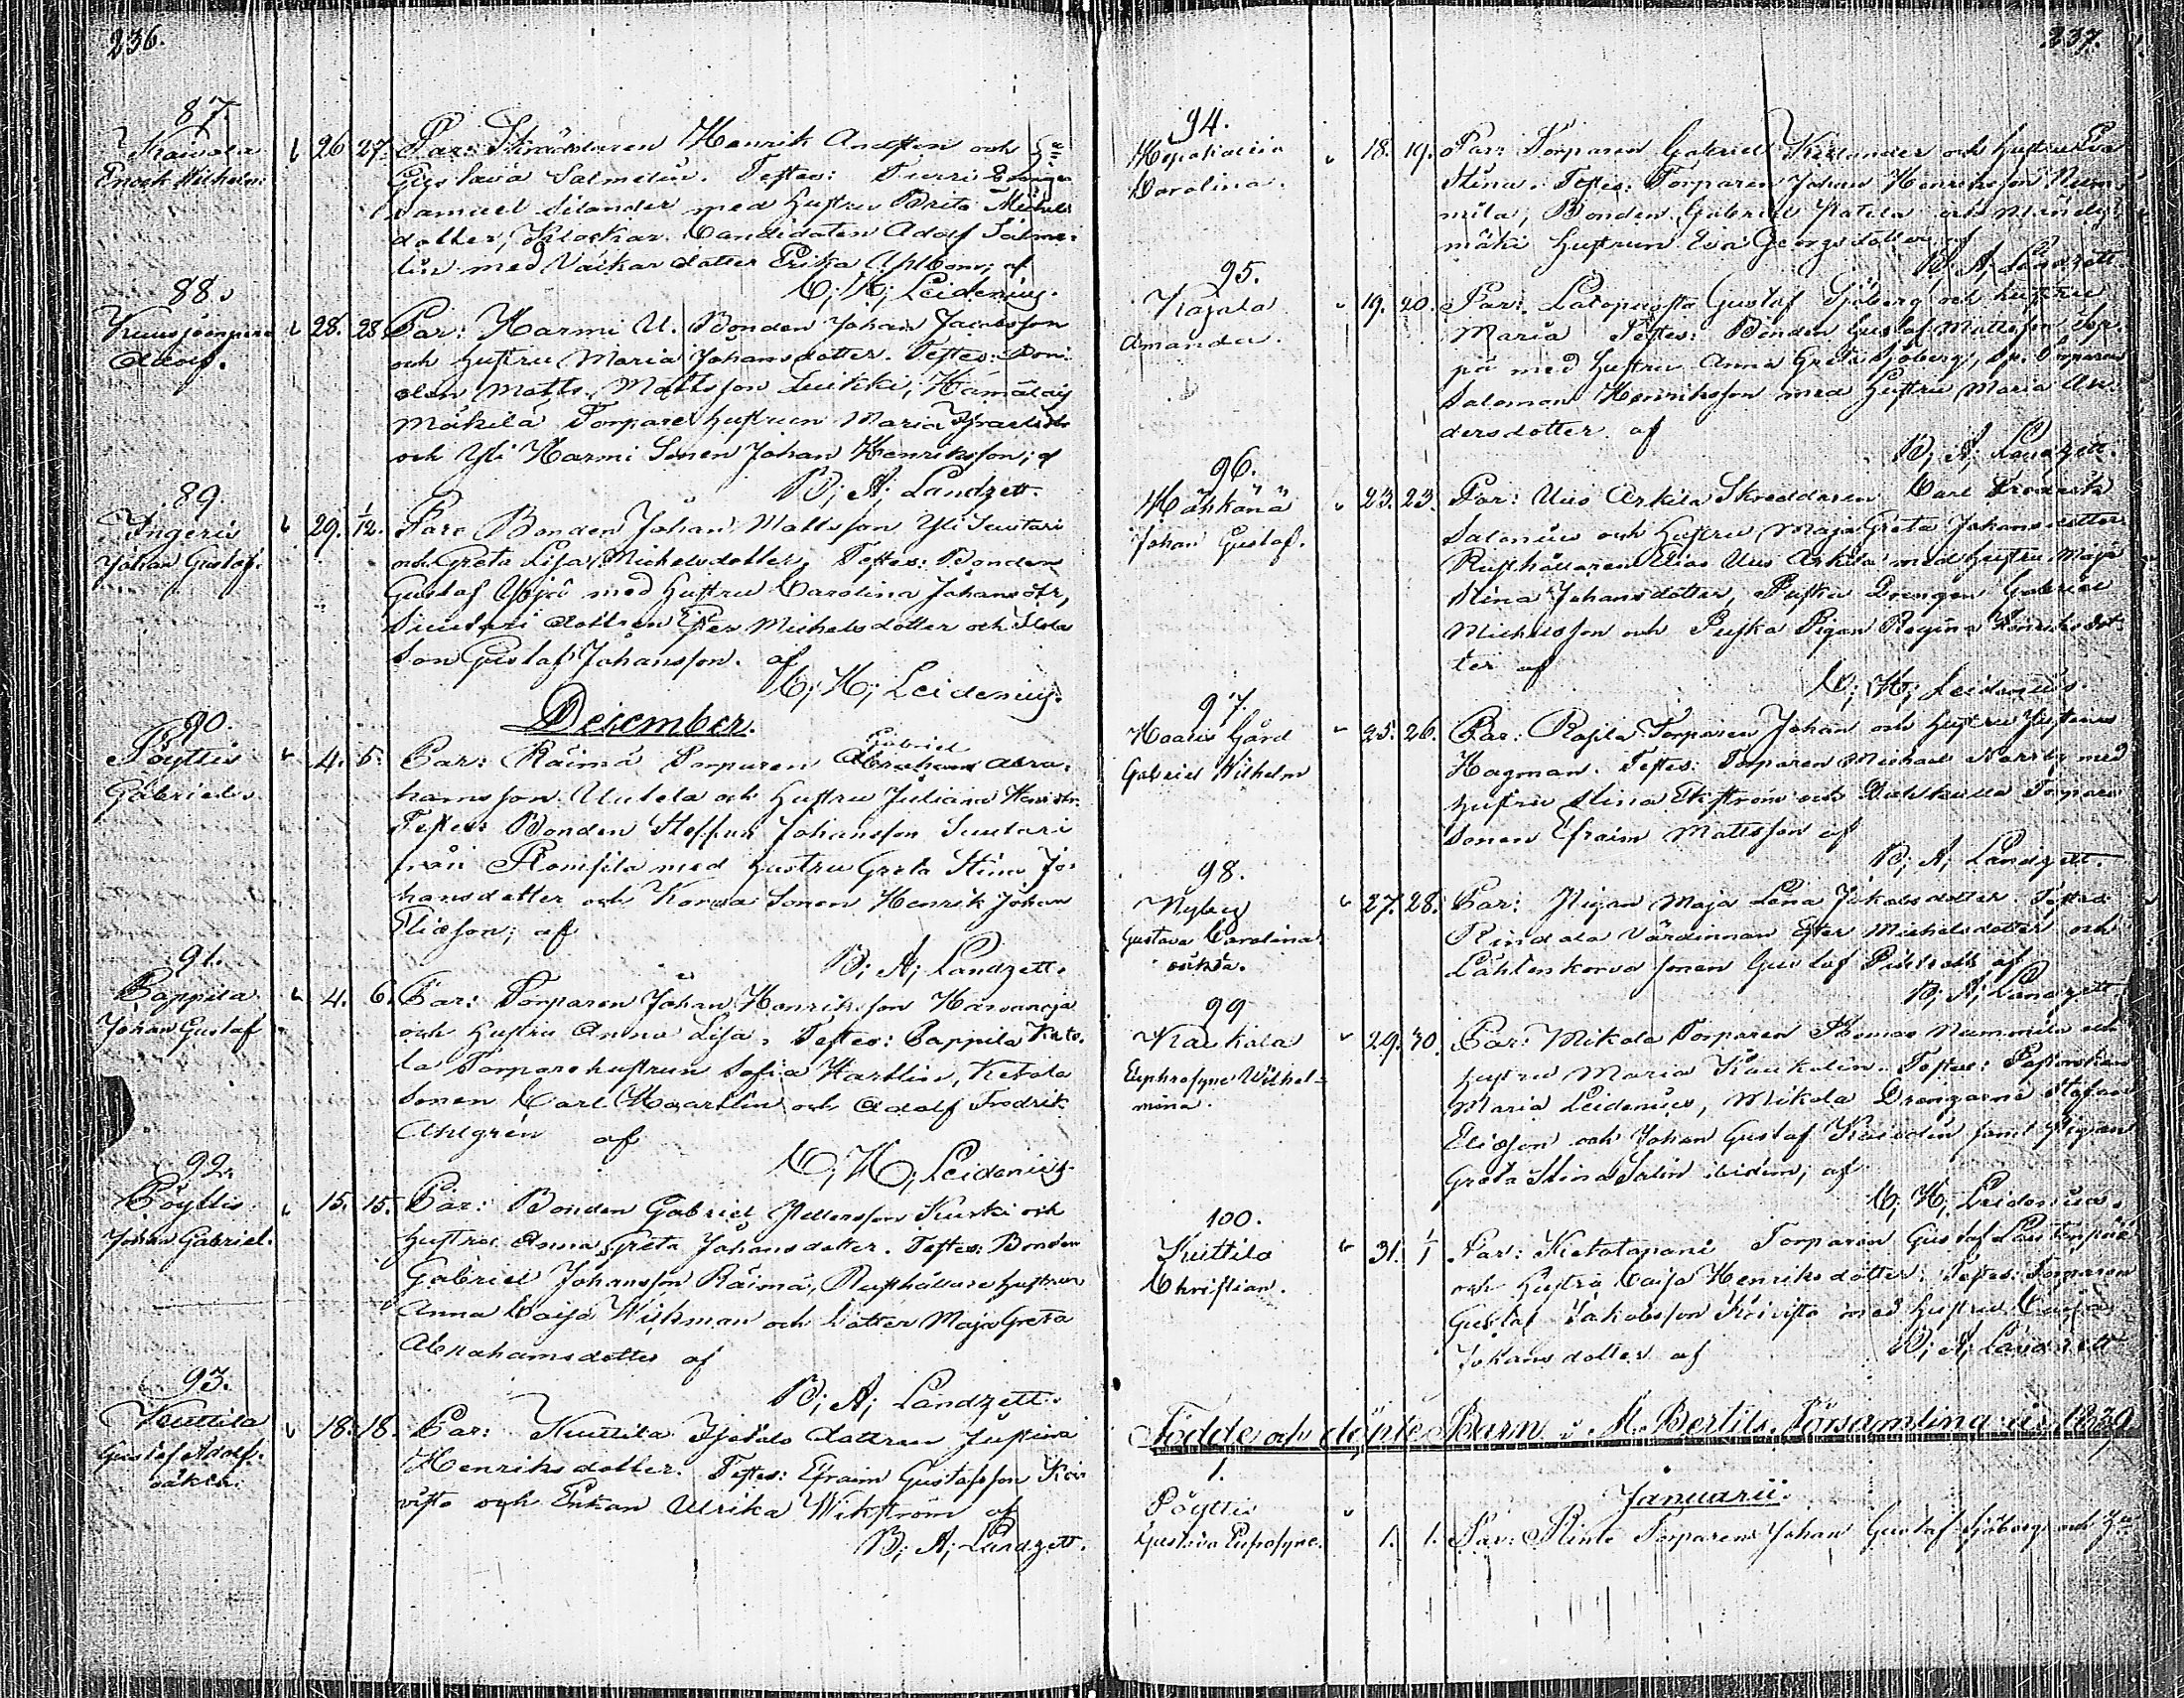 236.
87.
Kaivola
Enoch Wilhelm
26 27. Par: Skräddaren Henrik Andsson och
Gustava Salmelin. Testes: Furri Drängen
Samuel Silander med hustru Brita Michels
dotter, Klockar Candidaten Adolf Salme-
lin med Väckar dotter Erika Ahlbom; af
C; H; Leidenius.
88.
Kuusjoenperä
Adolf.
28. 28 Par: Harmi U. Bonden Johan Jacobsson
och hustru Maria Johansdotter. Testes: Bon-
den Matts Mattsson Leikki, Hämäläis
Mäkilä Torpare hustrun Maria
och Yli Harmi Sonen Johan Henriksson; af
B; A; Landzett.
89.
Ingeris
Johan Gustaf.
29. 1/12. Par: Bonden Johan Mattsson Yli Suutari
och Greta Lisa Michelsdotter. Testes: Bonden
Gustaf Yijö med hustru Carolina Johansdtr,
Suutari dottren Ester Michelsdotter och
Son Gustaf Johansson. af
C; H; Leidenius.
December.
90.
Pöyttis
Gabriel.
4. 5. Par: Räimä Torparen Gabriel Abra-
hamsson Uutela och hustru Juliana
Testes: Bonden Steffan Johansson Suutari
från Romsila med hustru Greta Stina Jo-
hansdotter och Korva Sonen Henrik Johan
Eliasson; af
B; A; Landzett.
91.
Pappila
Johan Gustaf
4. 6. Par: Torparen Johan Henriksson Harvaoja
och hustru Anna Lisa. Testes: Pappila Keto-
la Torpare hustrun Sofia Hartlin, Ketola
Sonen Carl Haartlin och Adolf Fredrik
Ahlgrén af
C; H; Leidenius.
92.
Pöyttis
Johan Gabriel.
15. 15. Par: Bonden Gabriel Pettersson Kurki och
hustru Anna Greta Johansdotter. Testes: Bonden
Gabriel Johansson Räimä, Rusthållare hustrun
Anna Caisa Wikman och dotter Maja Greta
Abrahamsdotter af
B; A; Landzett.
93.
Kuttila
Gustaf Adolf.
oäkta.
18. 18. Par: Kuttila Itsells dottren Justina
Henriksdotter. Testes: Efraim Gustafsson Koi-
visto och Enkan Ulrika Wikström af
B; A; Landzett.
237.
94.
Carolina.
18. 19. Par: Torparen Gabriel Kerlander och hustru Eva
Stina. Testes: Torparen Johan Henriksson Num-
mila, Bonden Gabriel Patila och
mäki hustrun Eva Georgsdotter af
B; A; Landzett.
95.
Kajala
Amanda.
19. 20. Par: Gustaf Sjöberg och hustru
Maria Testes: Bonden Gustaf Mattsson
på med hustru Anna Greta Sjöberg, Torparen
Salomon Henriksson med hustru Maria An-
dersdotter. af
B; A; Landzett.
96.
Mähkänä
Johan Gustaf.
23. 23. Par: Uus Arkila Skreddaren Carl Fredrik
Salenius och hustru Maja Greta Johansdotter
Rusthållaren Elias Uus Arkila med hustru Maja
Stina Johansdotter, Puska Drengen Gabriel
Michelsson och Puska Pigan Regina Henriksdot-
ter af
C; H; Leidenius.
97.
Haaris Gård
Gabriel Wilhelm
25. 26. Par: Torparen Johan och hustru Justina
Hagman. Testes: Torparen Michael med
hustru Stina Ekström och Torpare
Sonen Efraim Mattsson af
B; A; Landzett.
98.
Nyby
Gustava Carolina
oäkta.
27. 28. Par: Pigan Maja Lena Jakobsdotter. Testes:
Rindala Värdinnan Ester Michelsdotter och
Lähtenkorva Sonen Gustaf af
B; A; Landzett.
99
Kaukola
Euphrosyne Wilhel-
mina.
29. 30. Par: Mikola Torparen Thomas Nummila och
hustru Maria Kaukolin. Testes:
Maria Leidenius, Mikola Drengarne Stefan
Eliasson och Johan Gustaf samt Pigan
Greta Stina Salin ibidem; af
C; H; Leidenius.
100.
Kuttila
Christian.
31. 1/1 Par: Ketotapani Torparen Gustaf
och hustru Caisa Henriksdotter. Testes: Torparen
Gustaf Jakobsson Koivisto med hustru Caisa
Johansdotter af B; A; Landzett
Födde och döpte Barn i M. Bertils Församling år 1839
Januarii.
1.
Pöyttis
Gustava Eufrosyne.
1. 1. Par: Torparen Johan Gustaf Sjöberg och